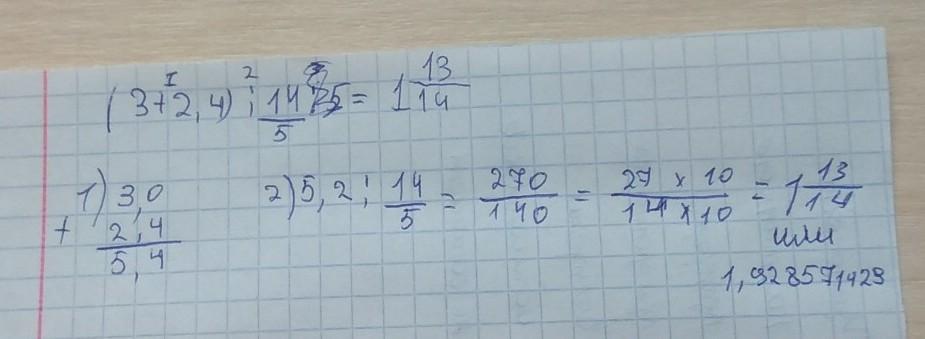 (3+2,4) : 14/5 = 1 13/14
1) 3,0 + 2,4 5,4
2) 5,2 : 14/5 = 270/140 = 27 x 10/14 x 10 = 1 13/14
или
1,928571429